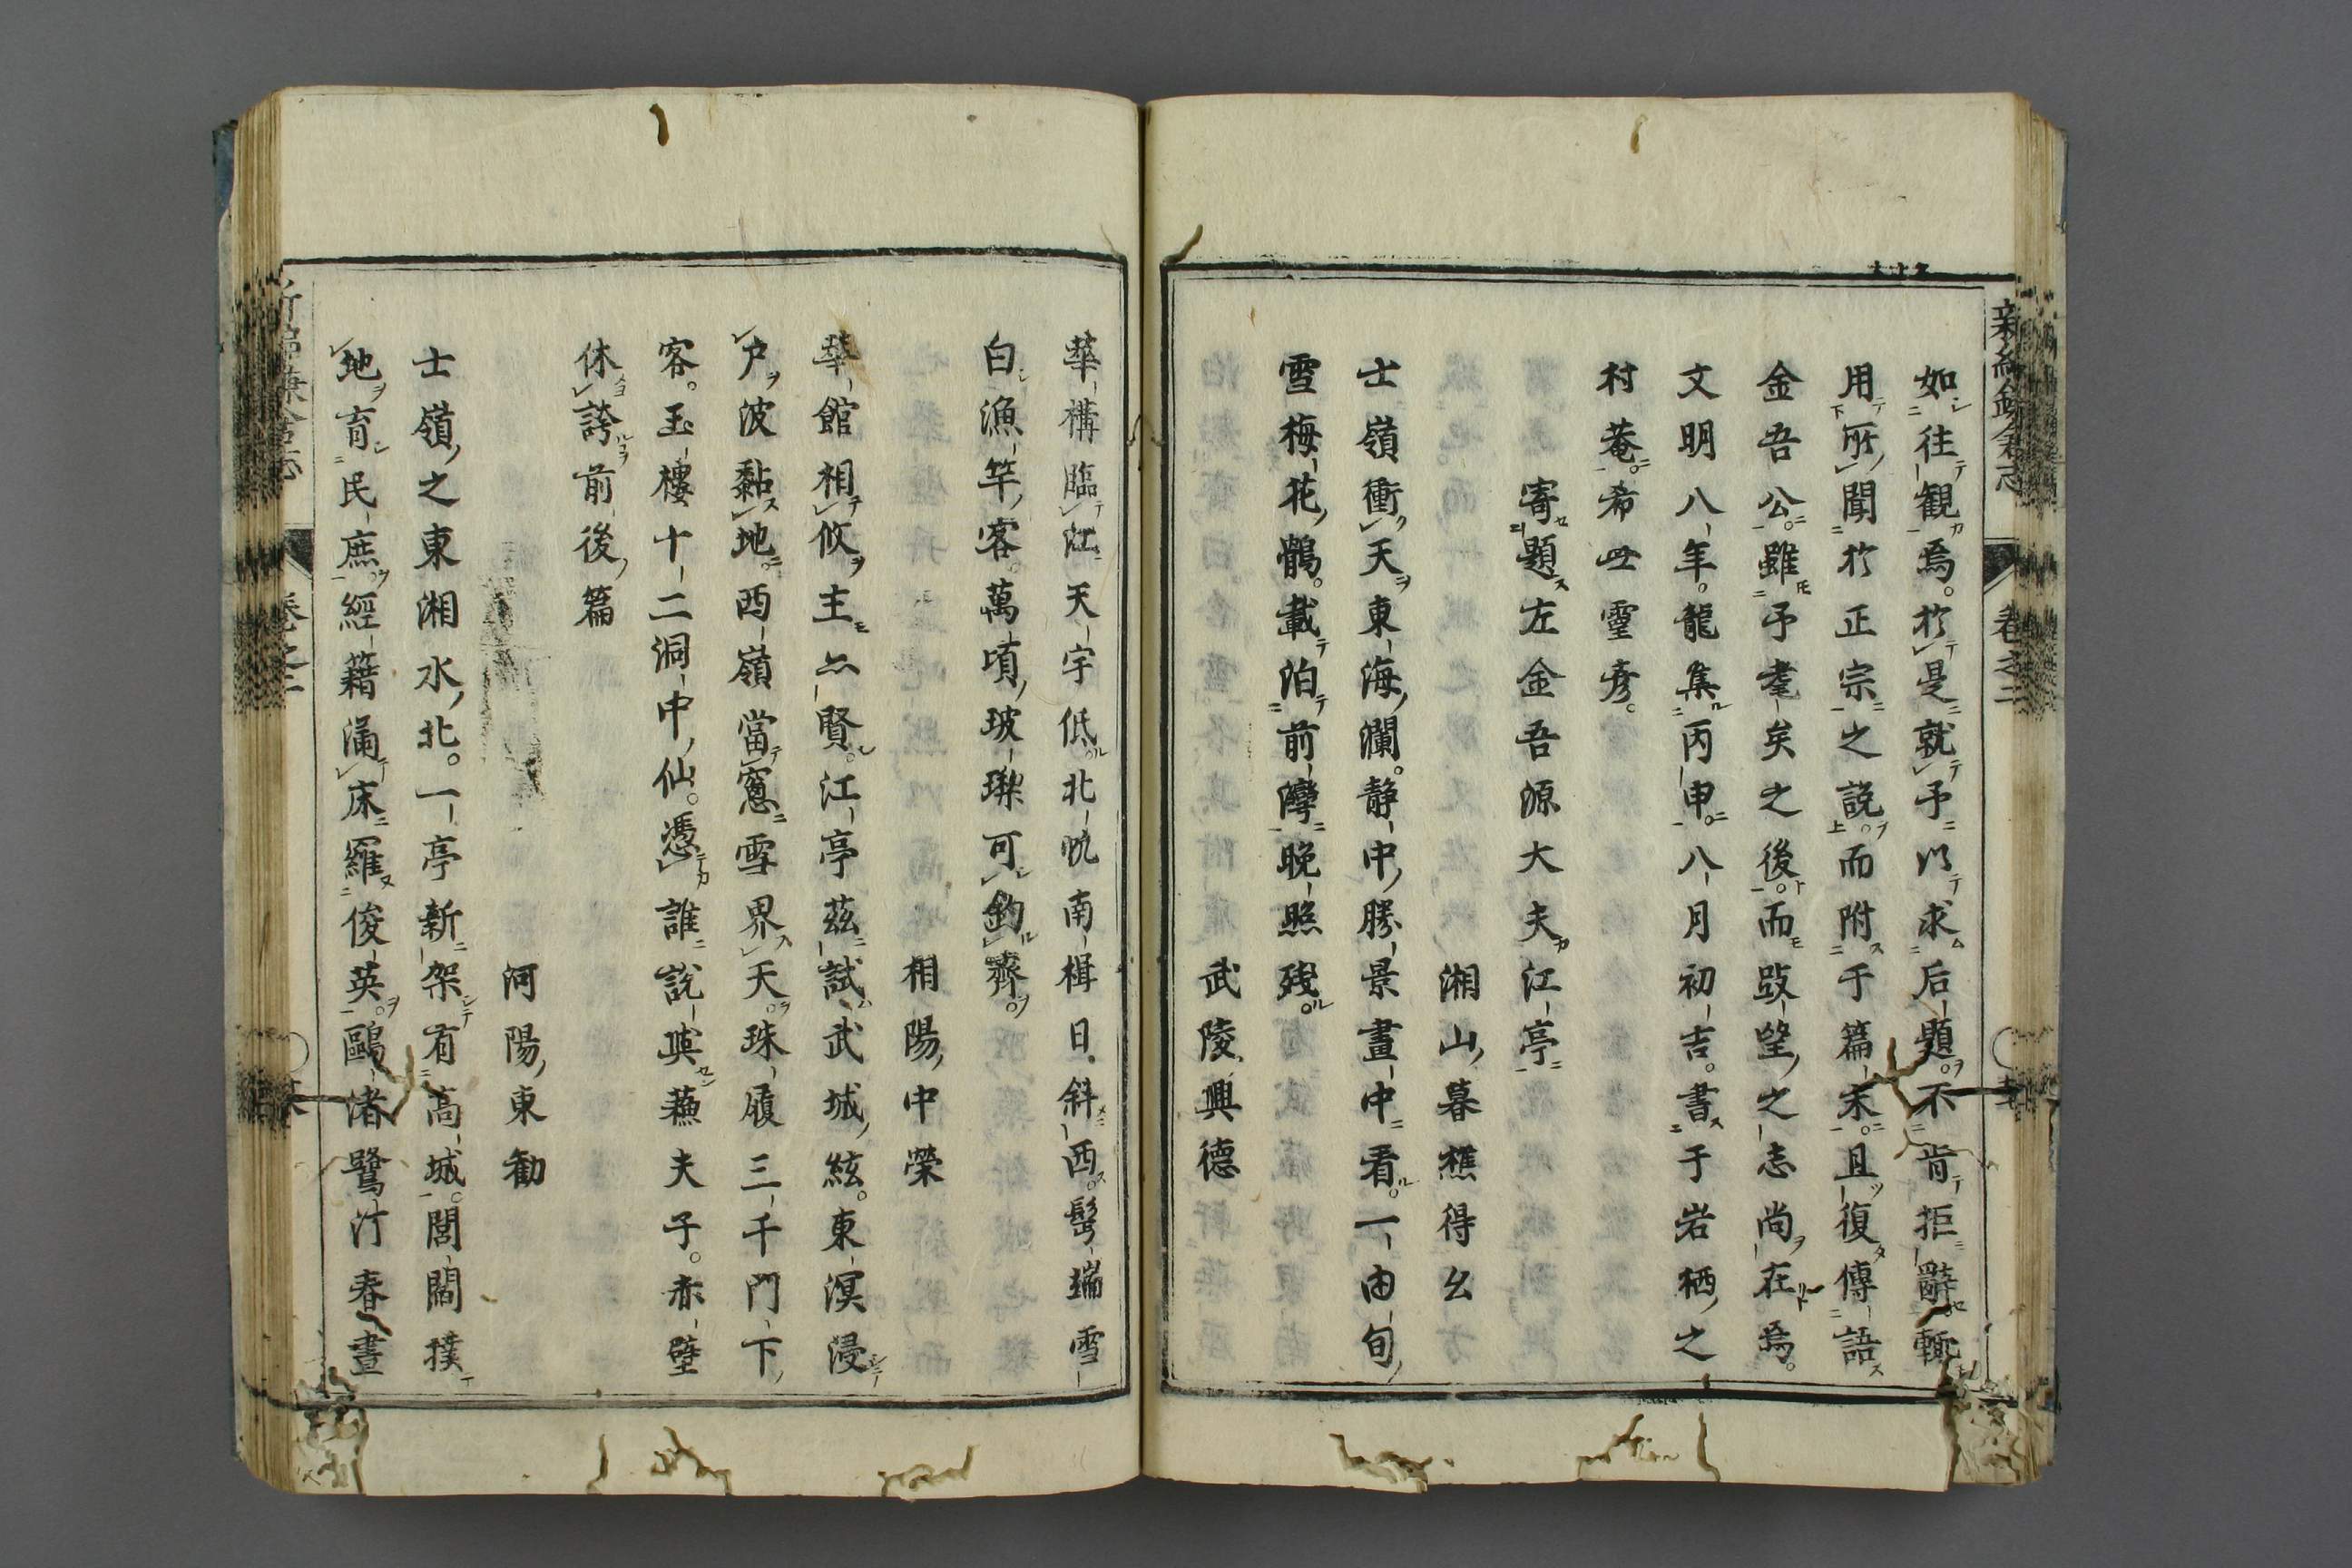 新編鎌倉志 卷之二
如往觀焉。於是就予以求后題。不肯拒辭輙
用所聞於正宗之說。而附于篇末。且復傳語
金吾公。雖予耄矣之後。而跂望之志尚在焉。
文明八年。龍集丙申。八月初吉。書于岩栖之
村菴。希世靈彦。
寄題左金吾源大夫江亭
湘山暮樵得么
士嶺衝天東海瀾。静中勝景畫中看。一由旬
雪梅花鶴。載泊前灣晚照殘。
武陵興德
華構臨江天宇低。北帆南楫日斜西。髻端雪
白漁竿客。萬頃玻瓈可釣齊。
相陽中榮
華館相攸主亦賢。江亭茲試武城絃。東溟浸
戶波黏地。西嶺當窻雪界天。珠履三千門下
客。玉樓十二洞中仙。憑誰說與蘓夫子。赤壁
休誇前後篇
河陽東勸
士嶺之東湘水北。一亭新架有高城。閭閻撲
地育民庶。經籍滿床羅俊英。鷗渚鷺汀春晝